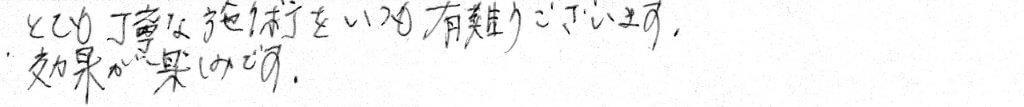 とても丁寧な施術をいつも有難うございます。
効果が楽しみです。